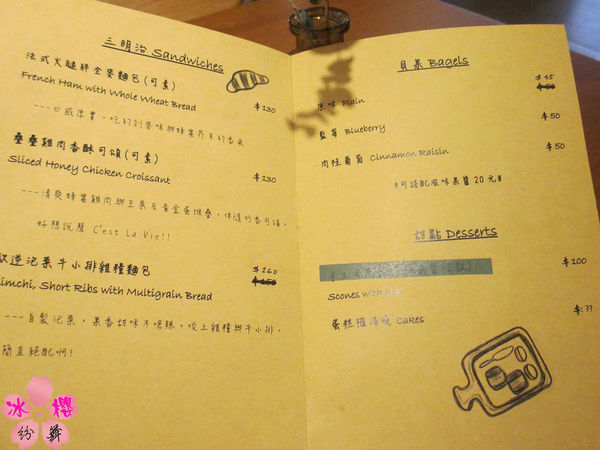 三明治 Sandwiches
法式火腿胖全麥麵包(可素)
French Ham with Whole Wheat Bread $130
---口感厚實，吃的到麥味與蜂蜜芥末的香氣
疊疊雞肉香酥可頌(可素)
Sliced Honey Chicken Croissant $130
---清爽蜂蜜雞肉與生菜及黃金蛋堆疊，伴隨奶香可頌，
好想說聲 C'est La Vie!!
泡菜牛小排雜糧麵包 $160
imchi, Short Ribs with Multigrain Bread $150
---自製泡菜，果香甜味不嗆辣，咬上雜糧與牛小排，
簡直絕配啊!
貝果 Bagels
原味 Plain $45
$50
藍莓 Blueberry $50
肉桂葡萄 Cinnamon Raisin $50
※可搭配風味果醬20元※
甜點 Desserts
$100
Scones with
蛋糕櫃請瞧 Cakes $:??
冰櫻
紛舞